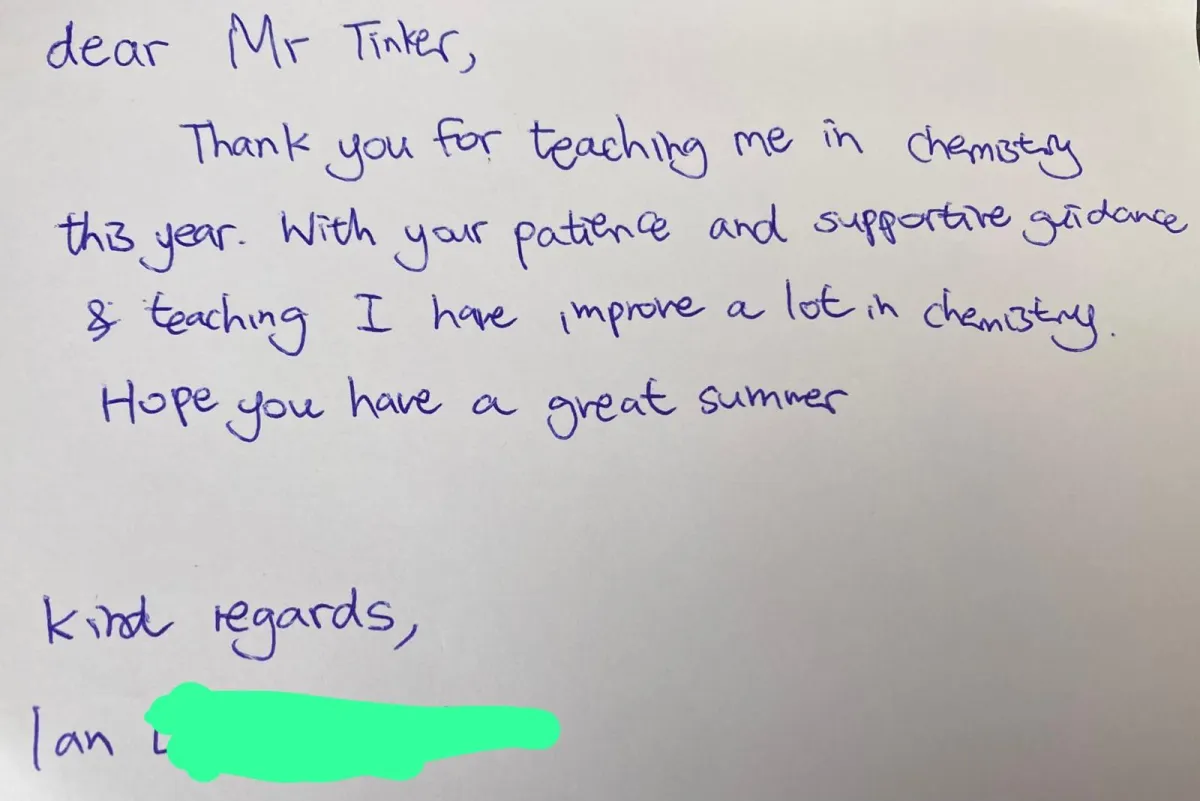 dear Mr Tinker,
Thank you for teaching me in chemistry
this year. With your patience and supportive guidance
& teaching I have improve a lot in chemistry.
Hope you have a great summer
Kind regards,
Ian